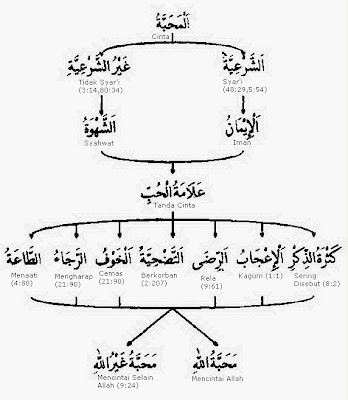 اَلْمَحَبَّةُ
Cinta
اَلشَّرْعِيَّةُ
Syar'i
(48:29,5:54)
غَيْرُ الشَّرْعِيَّةِ
Tidak Syar'i
(3:14,80:34)
اَلْإِيْمَانُ
Iman
اَلشَّهْوَةُ
Syahwat
عَلَامَةُ الْحُبِّ
Tanda Cinta
كَثْرَةُ الذِّكْرِ
Sering
Disebut (8:2)
اَلْإِعْجَابُ
Kagum (1:1)
اَلرِّضَى
Rela
(9:61)
اَلتَّضْحِيَةُ
Berkorban
(2:207)
اَلْخَوْفُ
Cemas
(21:90)
اَلرَّجَاءُ
Mengharap
(21:90)
اَلطَّاعَةُ
Menaati
(4:80)
مَحَبَّةُ اللهِ
Mencintai Allah
مَحَبَّةُ غَيْرِ اللهِ
Mencintai Selain
Allah (9:24)